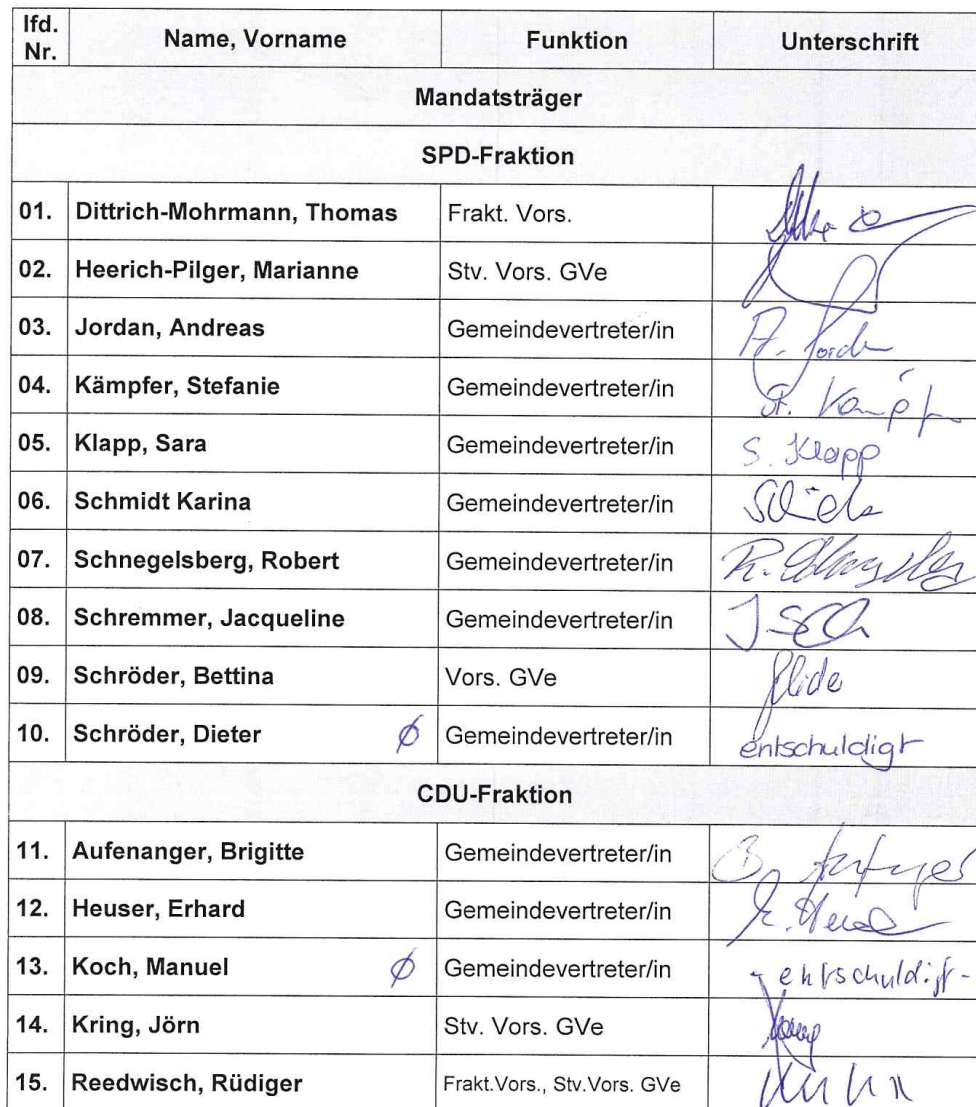 lfd. Nr. Name, Vorname Funktion Unterschrift
Mandatsträger
SPD-Fraktion
01. Dittrich-Mohrmann, Thomas Frakt. Vors.
02. Heerich-Pilger, Marianne Stv. Vors. GVe
03. Jordan, Andreas Gemeindevertreter/in A. Jordan
04. Kämpfer, Stefanie Gemeindevertreter/in St. Kämpf
05. Klapp, Sara Gemeindevertreter/in S. Klapp
06. Schmidt Karina Gemeindevertreter/in
07. Schnegelsberg, Robert Gemeindevertreter/in R.
08. Schremmer, Jacqueline Gemeindevertreter/in J Sch
09. Schröder, Bettina Vors. GVe
10. Schröder, Dieter Ø Gemeindevertreter/in entschuldigt
CDU-Fraktion
11. Aufenanger, Brigitte Gemeindevertreter/in B.
12. Heuser, Erhard Gemeindevertreter/in E. Heuser
13. Koch, Manuel Ø Gemeindevertreter/in - entschuldigt -
14. Kring, Jörn Stv. Vors. GVe
15. Reedwisch, Rüdiger Frakt.Vors., Stv.Vors. GVe